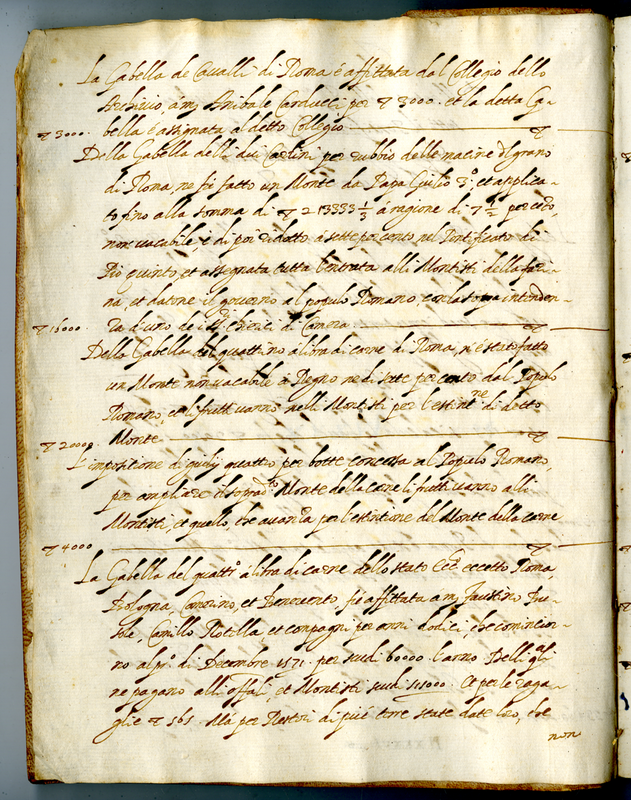 La Gabella de Cavalli di Roma é affittata dal Collegio dello
Archivio a m. Anibale Carducci per ▽ 3000. et la detta Ga-
▽ 3000. bella é assignata al detto Collegio ▽
Della Gabella delli dui Carlini per rubbio delle macine di grano
di Roma, ne fu fatto un Monte da Papa Giulio 3º, et applica-
to fino alla somma di ▽ 213333 1/3 á ragione di 7 1/2 per cento,
non vacabile, e di poi ridotto á sette per cento, nel Pontificato di
Pio quinto, et assegnata tutta l'entrata alli Montisti della fari-
na, et datone il governo al populo Romano, con la intenden-
▽ 16000. za d'uno de i chierici di Camera ▽
Della Gabella del quattrino á libra di carne di Roma, n'é stato fatto
un Monte non vacabile a ne di sette per cento dal Popolo
Romano, et li frutti vanno nelli Montisti per l'estintne di detto
▽ 20000. Monte ▽
L'impositione di giulij quattro per botte concessa al Populo Romano,
per ampliare il sopradto Monte della carne li frutti vanno alli
Montisti, et quello, che avanza per l'estintione del Monte della carne
▽ 4000 ▽
La Gabella del quattro a libra di carne dello stato Eccco eccetto Roma,
Bologna, Camerino, et Benevento, fu affittata a m. Faustino
Camillo et compagni per anni dodici, che comincior-
no al pro di Decembre 1571. per scudi 60000 l'anno. Delli qli
ne pagano alli offali, et Montisti scudi Et per le rega-
glie ▽ 565. Ma per di piú terre state date che
non